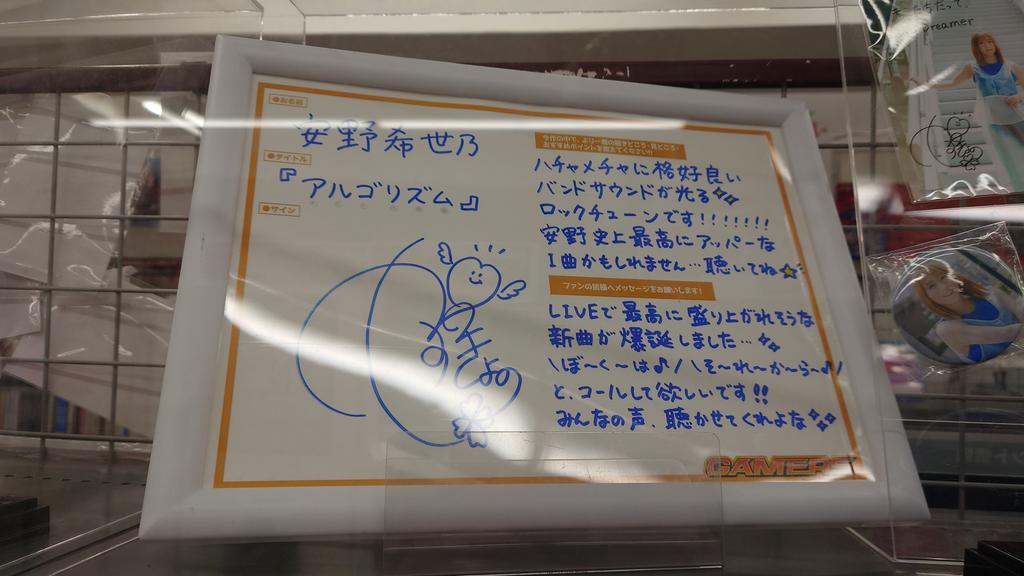 ●お名前
安野希世乃
●タイトル
『アルゴリズム』
●サイン
あんの
きよの
ハチャメチャに格好良い
バンドサウンドが光る
ロックチューンです!!!!!!!
安野史上最高にアッパーな
1曲かもしれません…聴いてね
ファンの皆様へメッセージをお願いします!
LIVEで最高に盛り上がれそうな
新曲が爆誕しました…
\ぼ〜く〜は♪/ \そ〜れ〜か〜ら〜♪/
と、コールして欲しいです!!
みんなの声、聴かせてくれよな
GAMERS
Dreamer